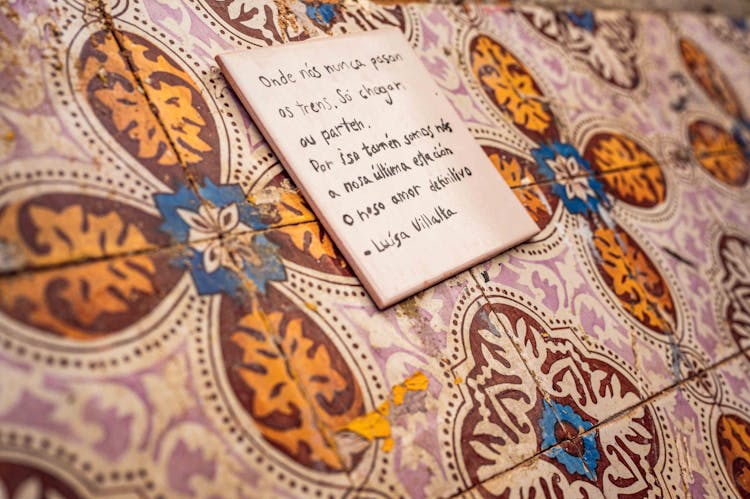 Onde nós nunca pasan
os trens. Só chegan
ou parten.
Por iso tamén somos nós
a nosa última estación
O noso amor definitivo
- Luísa Villalta